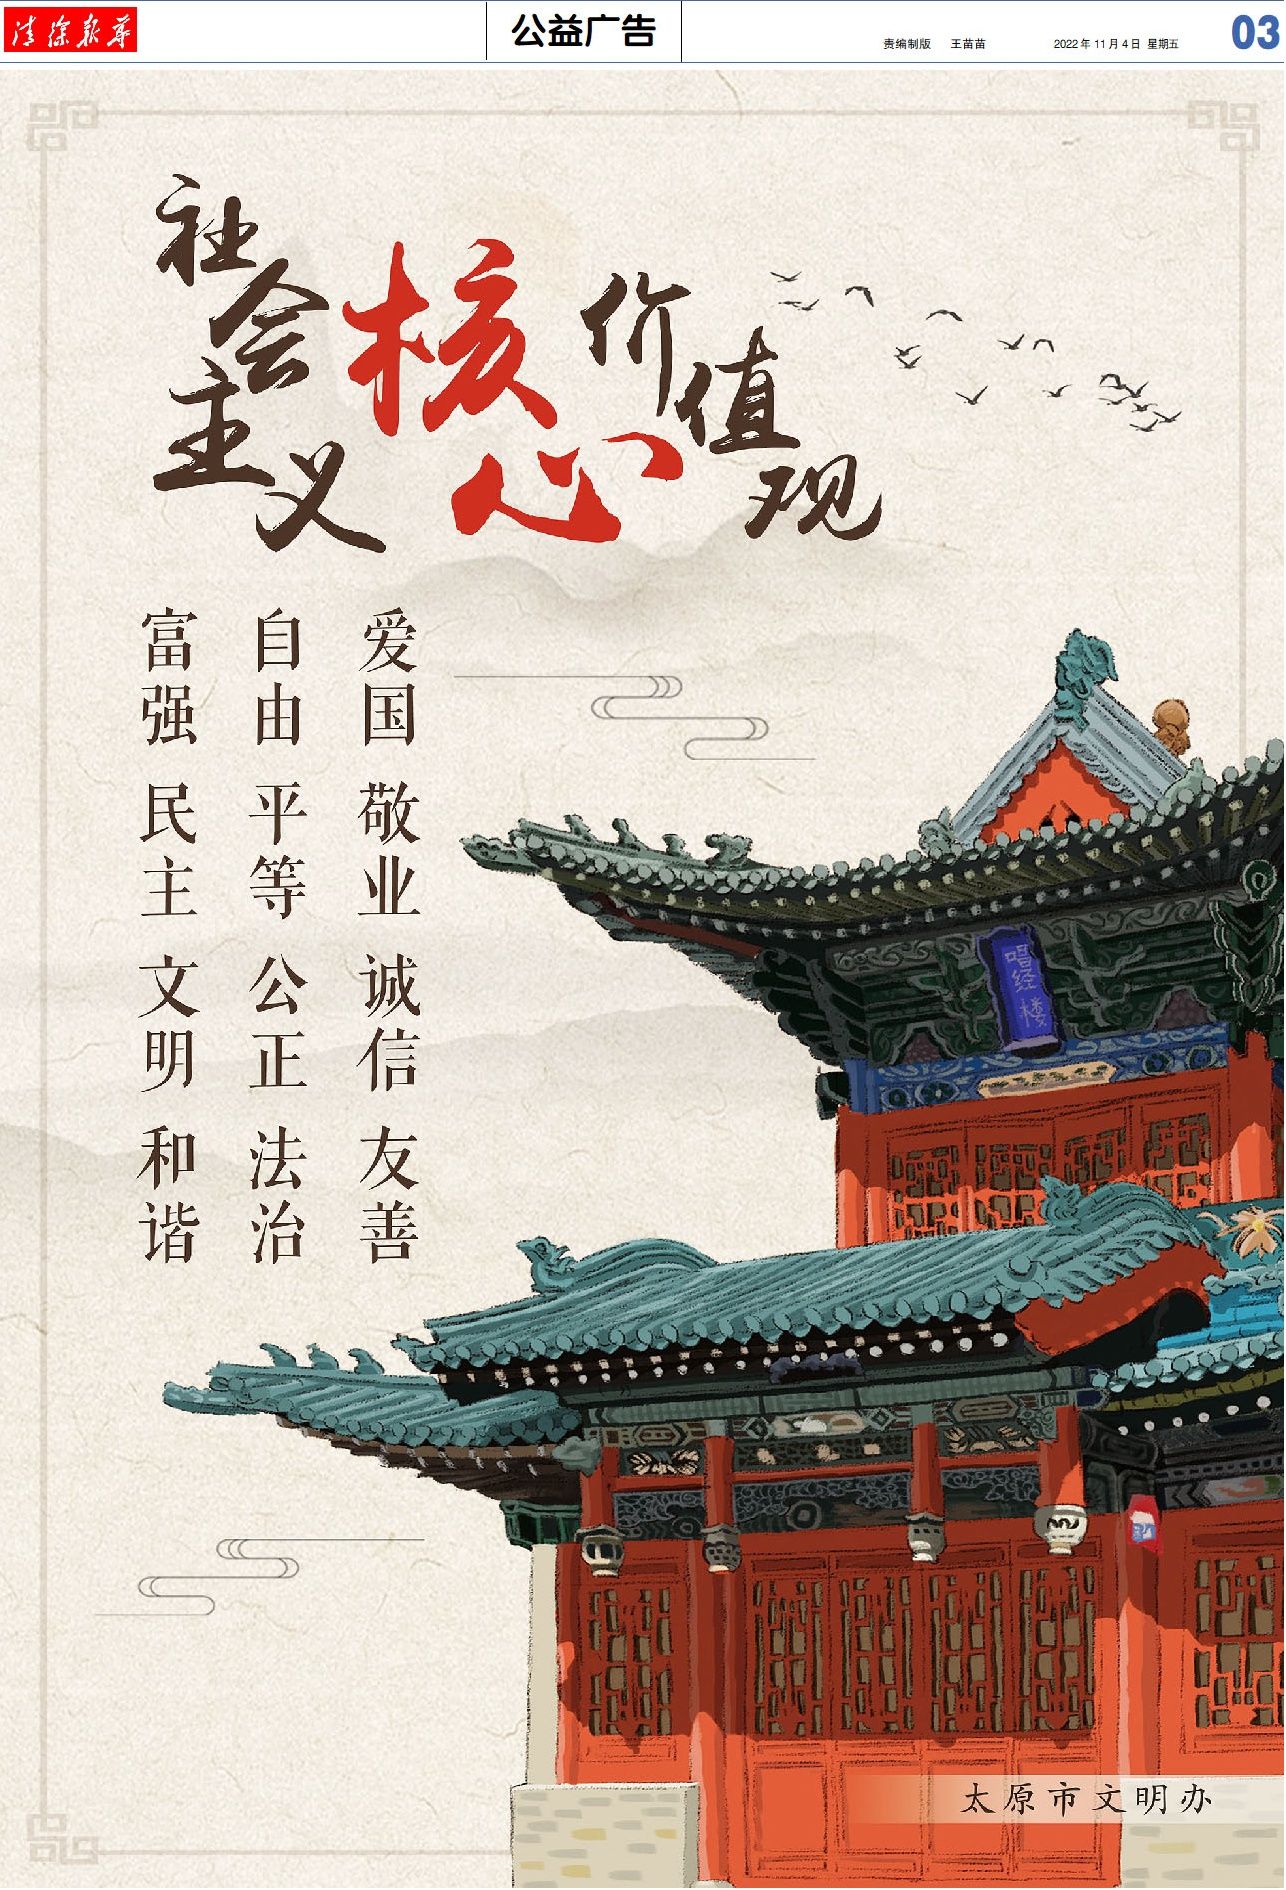 清徐报华
公益广告
责编制版 王苗苗
2022年11月4日 星期五
03
社会主义
核心
价值观
富强 民主 文明 和谐
自由 平等 公正 法治
爱国 敬业 诚信 友善
唱经楼
太原市文明办